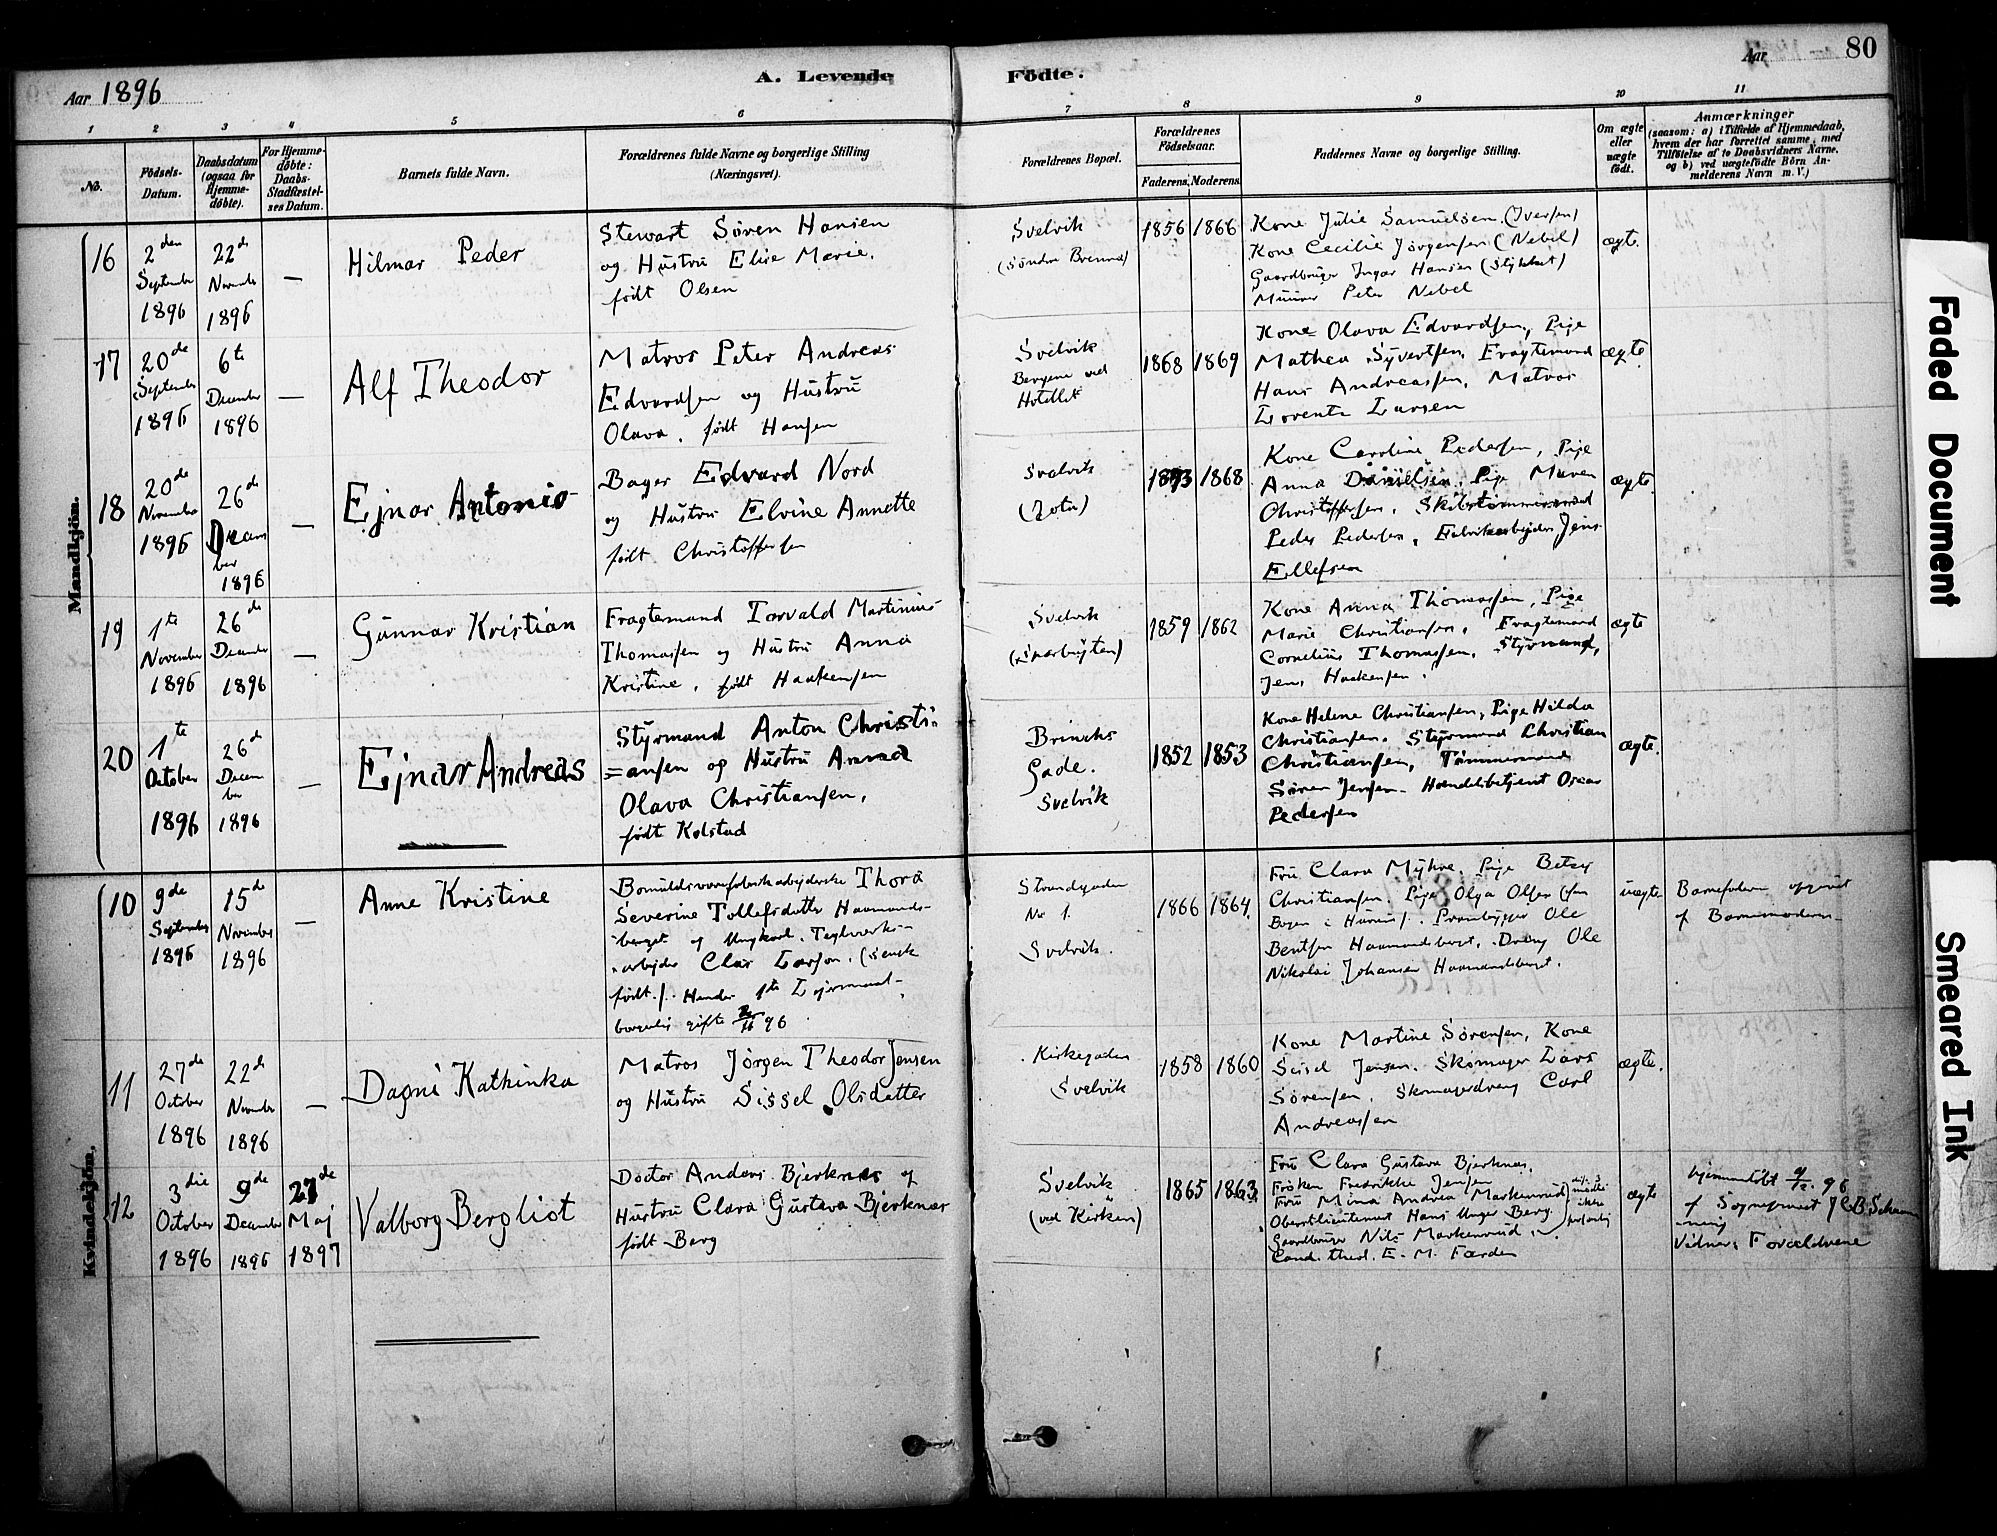 80
A. Levende Födte.
Aar 1896
Aar
1 2 3 4 5 6 7 8 9 10 11
No.
Födsels-
Datum.
Daabsdatum
(ogsaa for
Hjemme-
döbte).
For Hjemme-
döbte:
Daabs-
Stadfæstel-
ses Datum.
Barnets fulde Navn.
Forældrenes fulde Navne og borgerlige Stilling
(Næringsvei).
Forældrenes Bopæl.
Forældrenes
Födselsaar.
Faderens. Moderens.
Faddernes Navne og borgerlige Stilling.
Om ægte
eller
uægte
födt.
Anmærkninger
(saasom: a) i Tilfælde af Hjemmedaab,
hvem der har forrettet samme, med
Tilföielse af to Daabsvidners Navne,
og b) ved uægtefödte Börn An-
melderens Navn m. V.)
Mandkjön.
16
2den
September
1896
22de
November
1896
—
Hilmar Peder
Stewart Sören Hansen
og Hustru Elise Marie,
født Olsen
Svelvik
(Søndre Brenna)
1856 1866
Kone Julie Samuelsen (Iversen)
Kone Cecilie Jørgensen (Nebel)
Gaardbruger Ingar Hansen (Stykket)
Murer Peter Nebel
ægte.
17
20de
September
1896
6te
December
1896
—
Alf Theodor
Matros Peter Andreas
Edvardsen og Hustru
Olava, født Hansen
Svelvik
Bergene ved
Hotellet
1868 1869
Kone Olava Edvardsen, Pige
Mathea Syvertsen, Fragtemand
Hans Andreassen, Matros
Lorentz Larsen
ægte.
18
20de
November
1896
26de
Decem
ber
1896
—
Ejnar Antonio
Bager Edvard Nord
og Hustru Elvine Annette
født Christoffersen
Svelvik
1873 1868
Kone Caroline Pedersen, Pige
Anna Danielsen, Pige Maren
Christoffersen, Skibstømmermand
Peder Pedersen, Fabrikarbejder Jens
Ellefsen
ægte.
19
1te
November
1896
26de
December
1896
—
Gunnar Kristian
Fragtemand Torvald Martinius
Thomassen og Hustru Anna
Kristine, født Haakensen
Svelvik
1859 1862
Kone Anna Thomassen, Pige
Marie Christiansen, Fragtemand
Cornelius Thomassen, Styrmand,
Jens Haakensen.
ægte
20
1te
October
1896
26de
Decem
ber
1896
—
Ejnar Andreas
Styrmand Anton Christi-
=ansen og Hustru Anna
Olava Christiansen,
født Kolstad
Brinchs
Gade.
Svelvik
1852 1853
Kone Helene Christiansen, Pige Hilda
Christiansen. Styrmand Christian
Christiansen, Tømmermand
Søren Jensen. Handelsbetjent Oscar
Pedersen
ægte.
Kvindekjön.
10
9de
September
1896
15de
November
1896
—
Anne Kristine
Bomuldsvarefabrikarbejderske Thora
Severine Tollefsdatter Havnands-
berget og Ungkarl. Teglværks-
arbejder Clas Larson. (svensk
født). Hendes 1te Lejermaal-
borgerlig gifte 96
Strandgaden
No 1.
Svelvik.
1866 1864.
Fru Clara Myhre, Pige Betzy
Christiansen. Pige Olga Olsen (fra
Bogen i Hurum). Prambygger Ole
Bentsen Havnandsberget. Dreng Ole
Nikolai Johansen Havnandsberget.
uægte
Barnefaderen opgivet
af Barnemoderen
11
27de
October
1896
22de
November
1896
—
Dagni Kathinka
Matros Jørgen Theodor Jensen
og Hustru Sissel Olsdatter
Kirkegaden
Svelvik
1858 1860
Kone Martine Sørensen, Kone
Sissel Jensen. Skomager Lars
Sørensen. Skomagerdreng Carl
Andreassen
ægte.
12
3die
October
1896
9de
December
1896
27de
Maj
1897
Valborg Bergliot
Doctor Anders Bjerknes og
Hustru Clara Gustava Bjerknes
født Berg
Svelvik
(ved Kirken)
1865 1863.
Fru Clara Gustava Bjerknes.
Frøken Fredrikke Jensen
Fru Mina Andrea Markenrud
Oberstlieutenant Hans Unger Berg.
Gaardbruger Nils Markenrud
Cand. theol. E. M. Færden
ægte
hjemmedøbt 9/12 96
af Sognepræst
Vidner: Forældrene
Faded Document
Smeared Ink